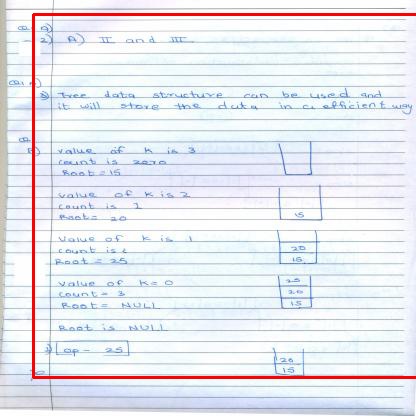 Q1 A)
2) A) II and III
Q1 A)
3) Tree data structure can be used and
it will store the data in a efficient way
Q2
B) value of k is 3
count is zero
Root = 15
value of k is 2
count is 1
Root = 20
15
value of k is 1
count is 2
Root = 25
20
15
value of k = 0
count = 3
Root = NULL
25
20
15
Root is NULL
1) op - 25
20
15